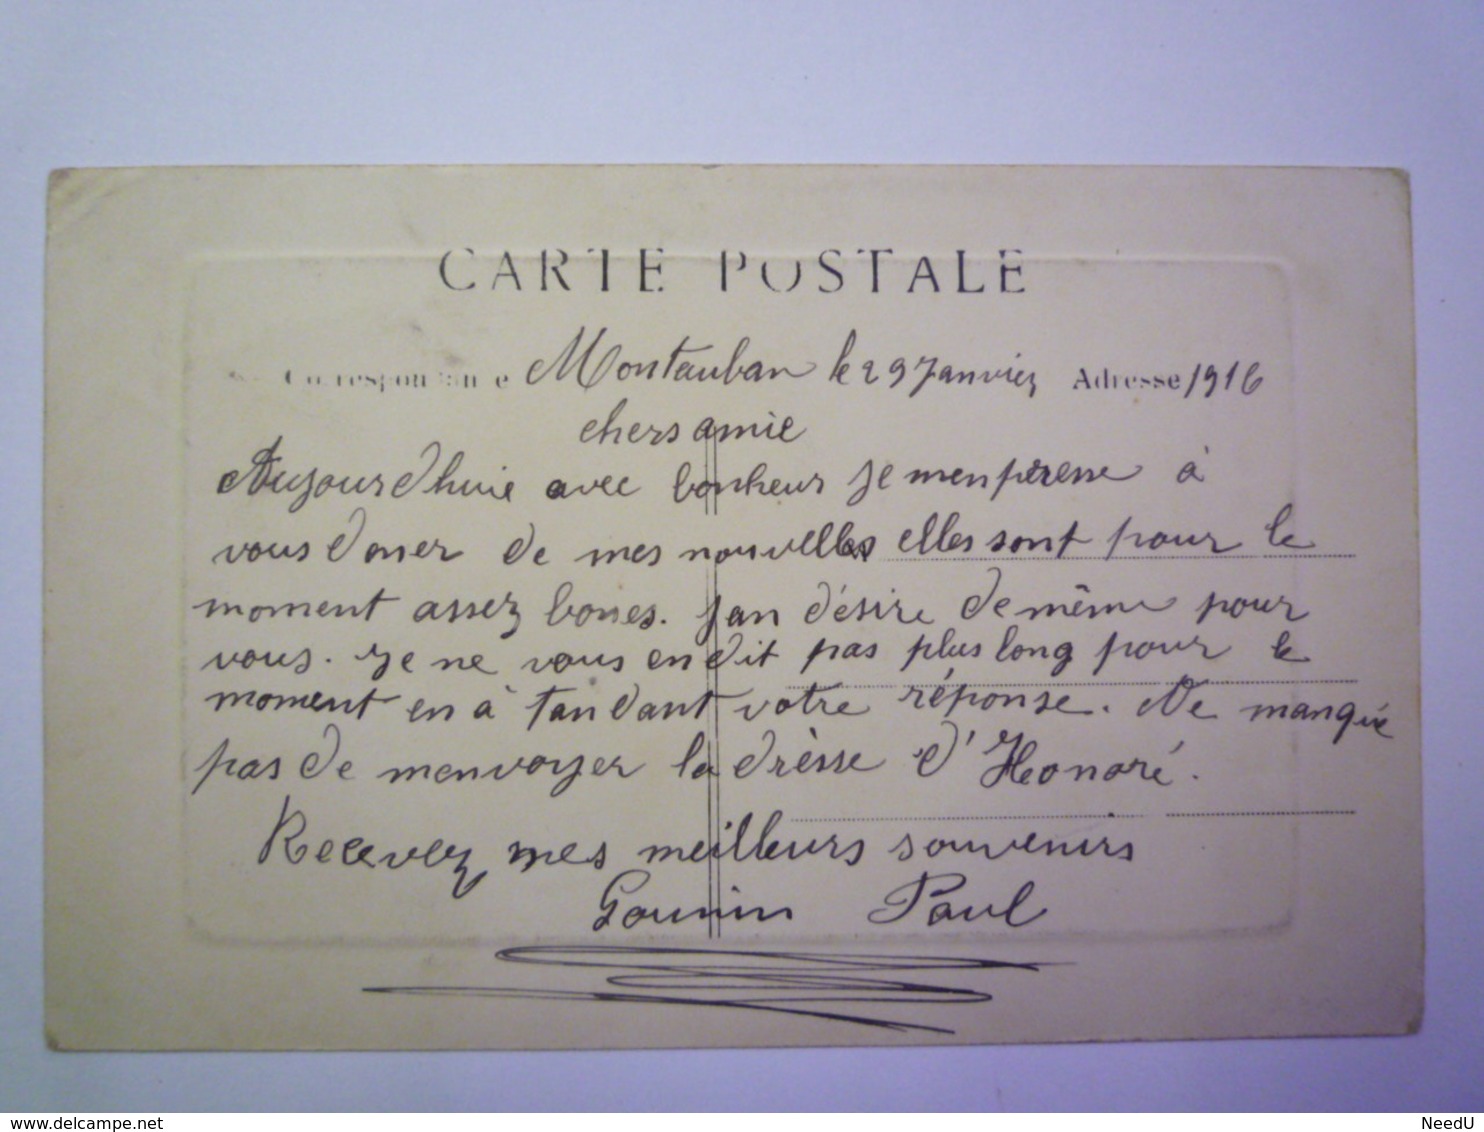 CARTE POSTALE
Correspondance Montauban le 29 Janvier Adresse 1916
chers amie
Aujourdhuie avec bonheur je menpresse à
vous doner de mes nouvelles elles sont pour le
moment assez bones. jan désire de même pour
vous. je ne vous en dit pas plus long pour le
moment en à tandant votre réponse. Ne manquie
pas de menvoyer la drèsse d'Honoré.
Recevez mes meilleurs souvenirs
Paul
www.delcampe.net
NeedU